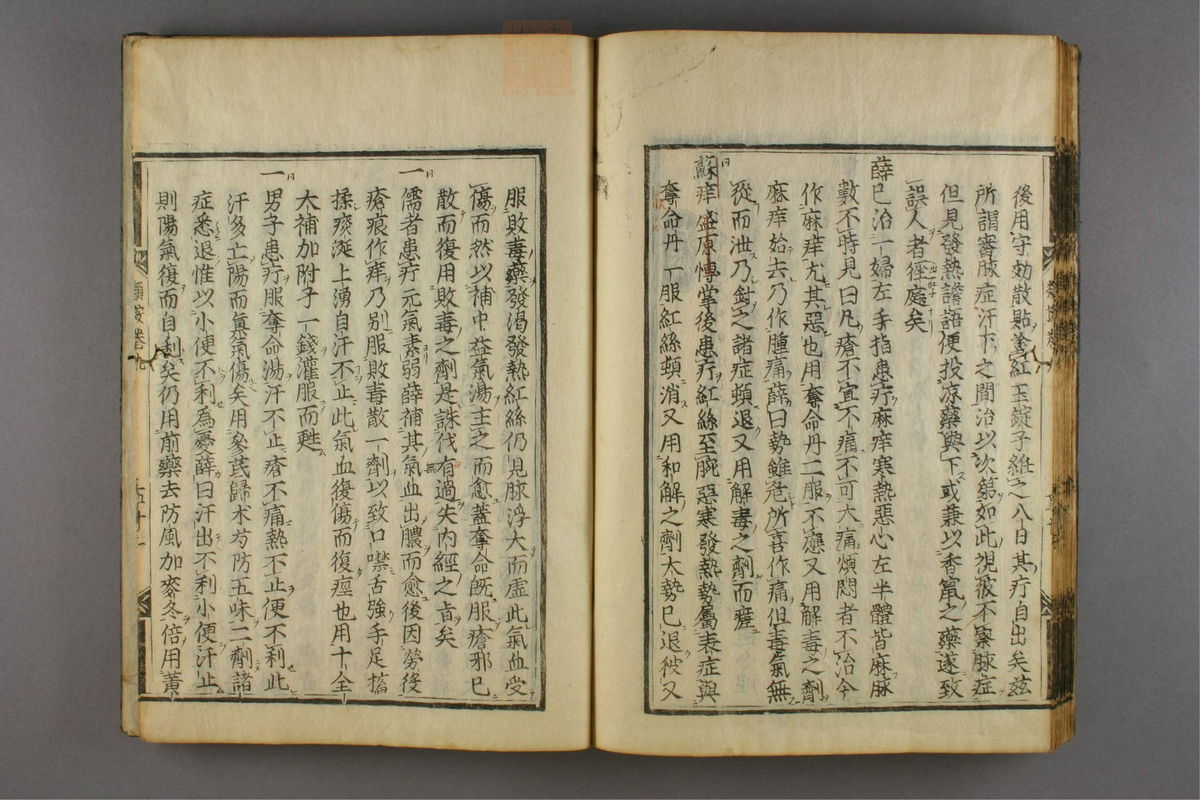 後用守効散貼釜紅玉錠子維之八日其疔自出矣玆
所謂審脉症汗下之間治以次第如此視彼不察脉症
但見發熱譫語便投凉藥與下或兼以香竄之藥遂致
誤人者徑庭矣
薛已治一婦左手指患疔麻痒寒熱惡心左半體皆麻脉
數不時見曰凡瘡不宜不痛不可大痛煩悶者不治今
作麻痒尤其惡也用奪命丹二服不應又用解毒之劑
麻痒始去乃作腫痛薛曰勢雖危所喜作痛但毒氣無
從而泄乃針之諸症頓退又用解毒之劑而瘥
蘇庠盛原博掌後患疔紅絲至腕惡寒發熱勢屬表症與
奪命丹一服紅絲頓消又用和解之劑大勢已退彼又
服敗毒藥發渴發熱紅絲仍見脉浮大而虛此氣血受
傷而然以補中益氣湯主之而愈蓋奪命旣服瘡邪已
散而復用敗毒之劑是誅伐有過失内經之㫖矣
一儒者患疔元氣素弱薛補其氣血出膿而愈後因勞後
瘡痕作痒乃别服敗毒散一劑以致口噤舌強手足搐
搦痰涎上湧自汗不止此氣血復傷而復痙也用十全
大補加附子一錢灌服而甦
一男子患疔服奪命湯汗不止瘡不痛熱不止便不利此
汗多亡陽而眞氣傷矣用參芪歸术芍防五味二劑諸
症悉退惟以小便不利爲憂薛曰汗出不利小便汗止
則陽氣復而自利矣仍用前藥去防風加麥冬倍用黃
類案卷九